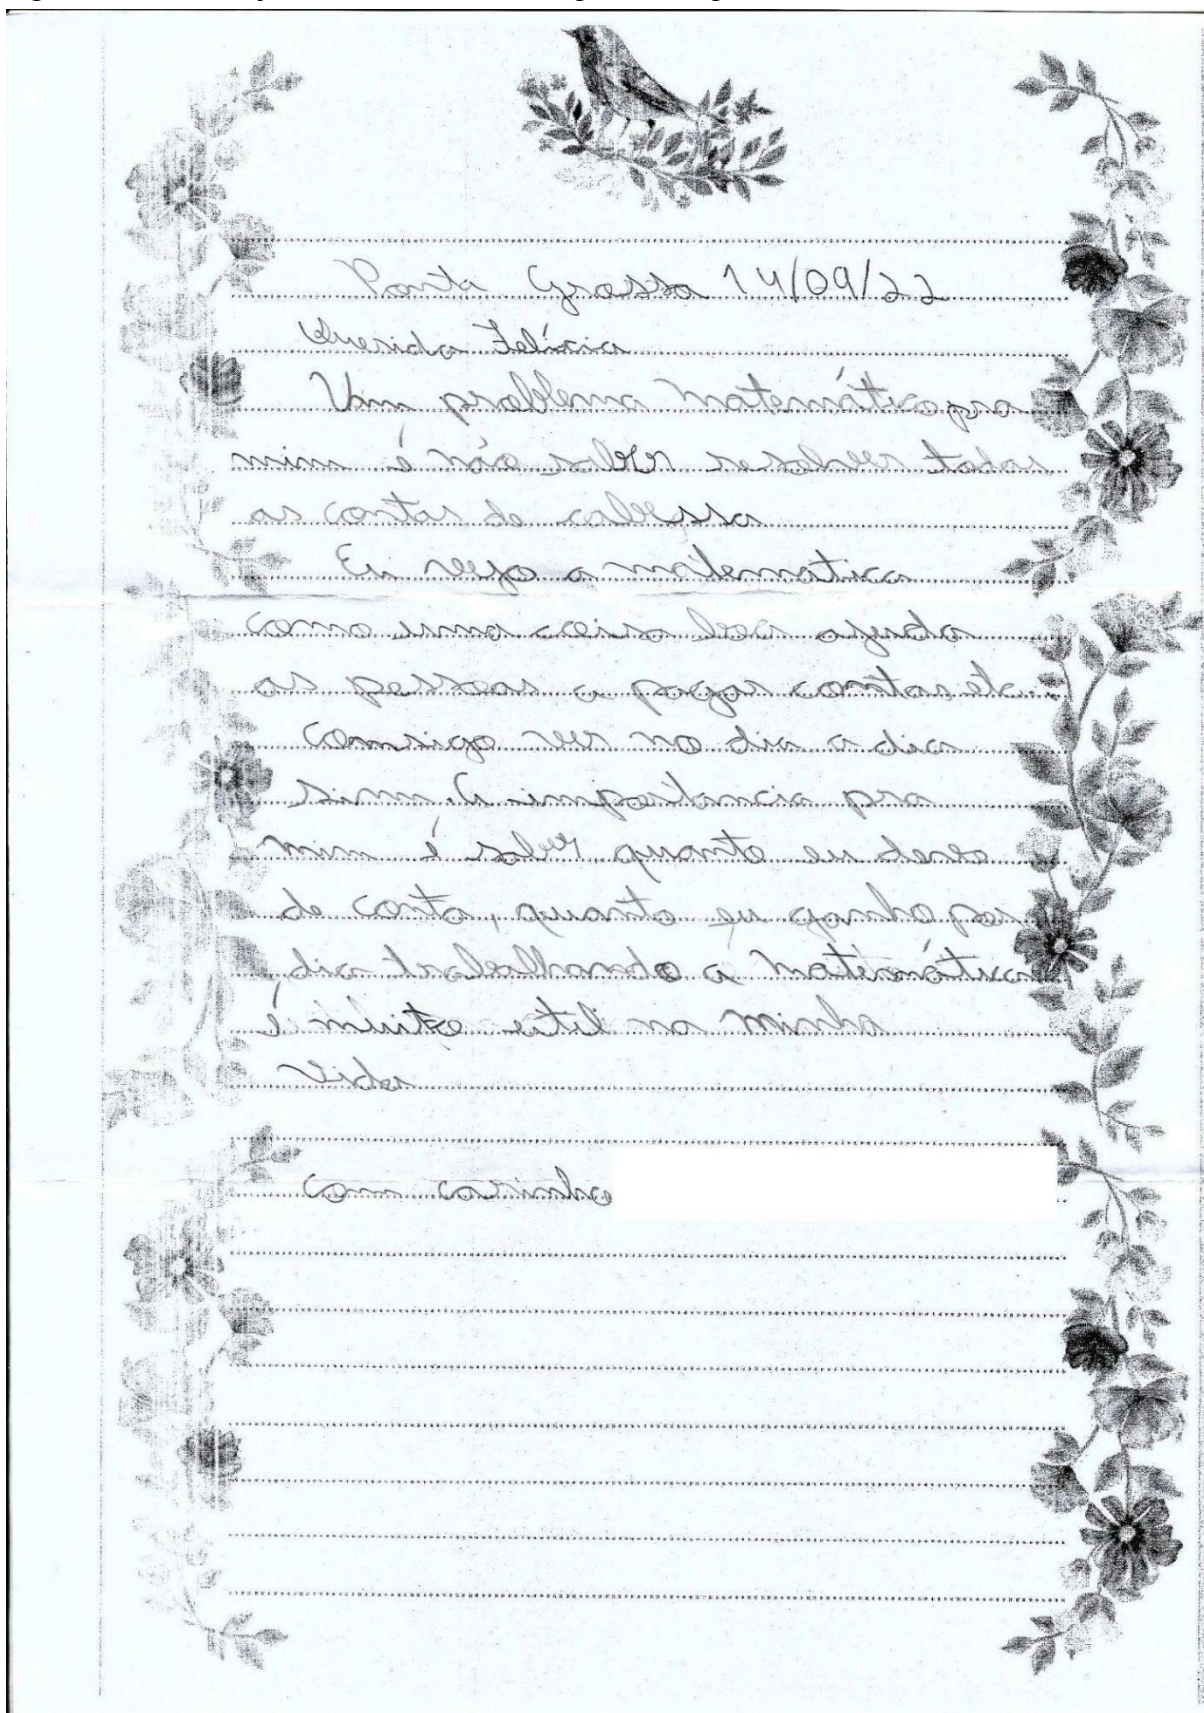 Ponta Grossa 14/09/22
Querida Felícia
Um problema matemático pra
mim é não saber resolver todas
as contas de cabessa
Eu vejo a matematica
como uma coisa boa ajuda
as pessoas a pagar contas etc
consigo ver no dia a dia
sim. A importancia pra
mim é saber quanto eu devo
de conta, quanto eu ganho por
dia trabalhando a matématica
é muito util na minha
vida
com carinho